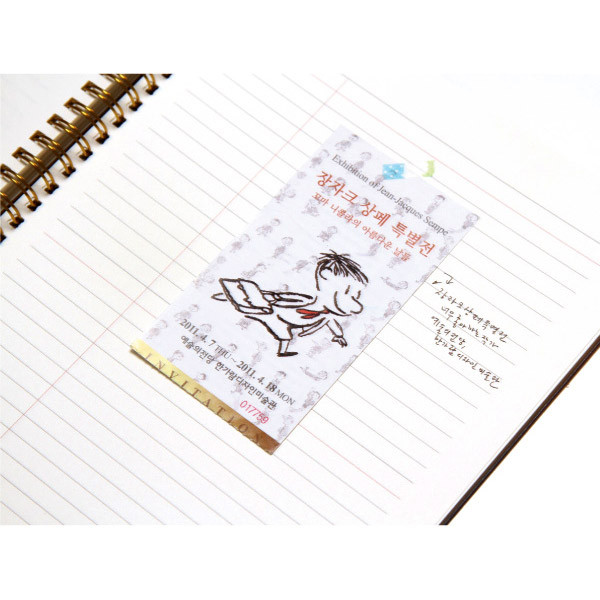 Exhibition of Jean-Jacques Sempe
장자크 상페 특별전
꼬마 니콜라의 아름다운 날들
2011. 4. 7 THU ~ 2011. 4. 18 MON
예술의전당 한가람디자인미술관
017759
INVITATION
예술의전당
한가람 디자인 미술관